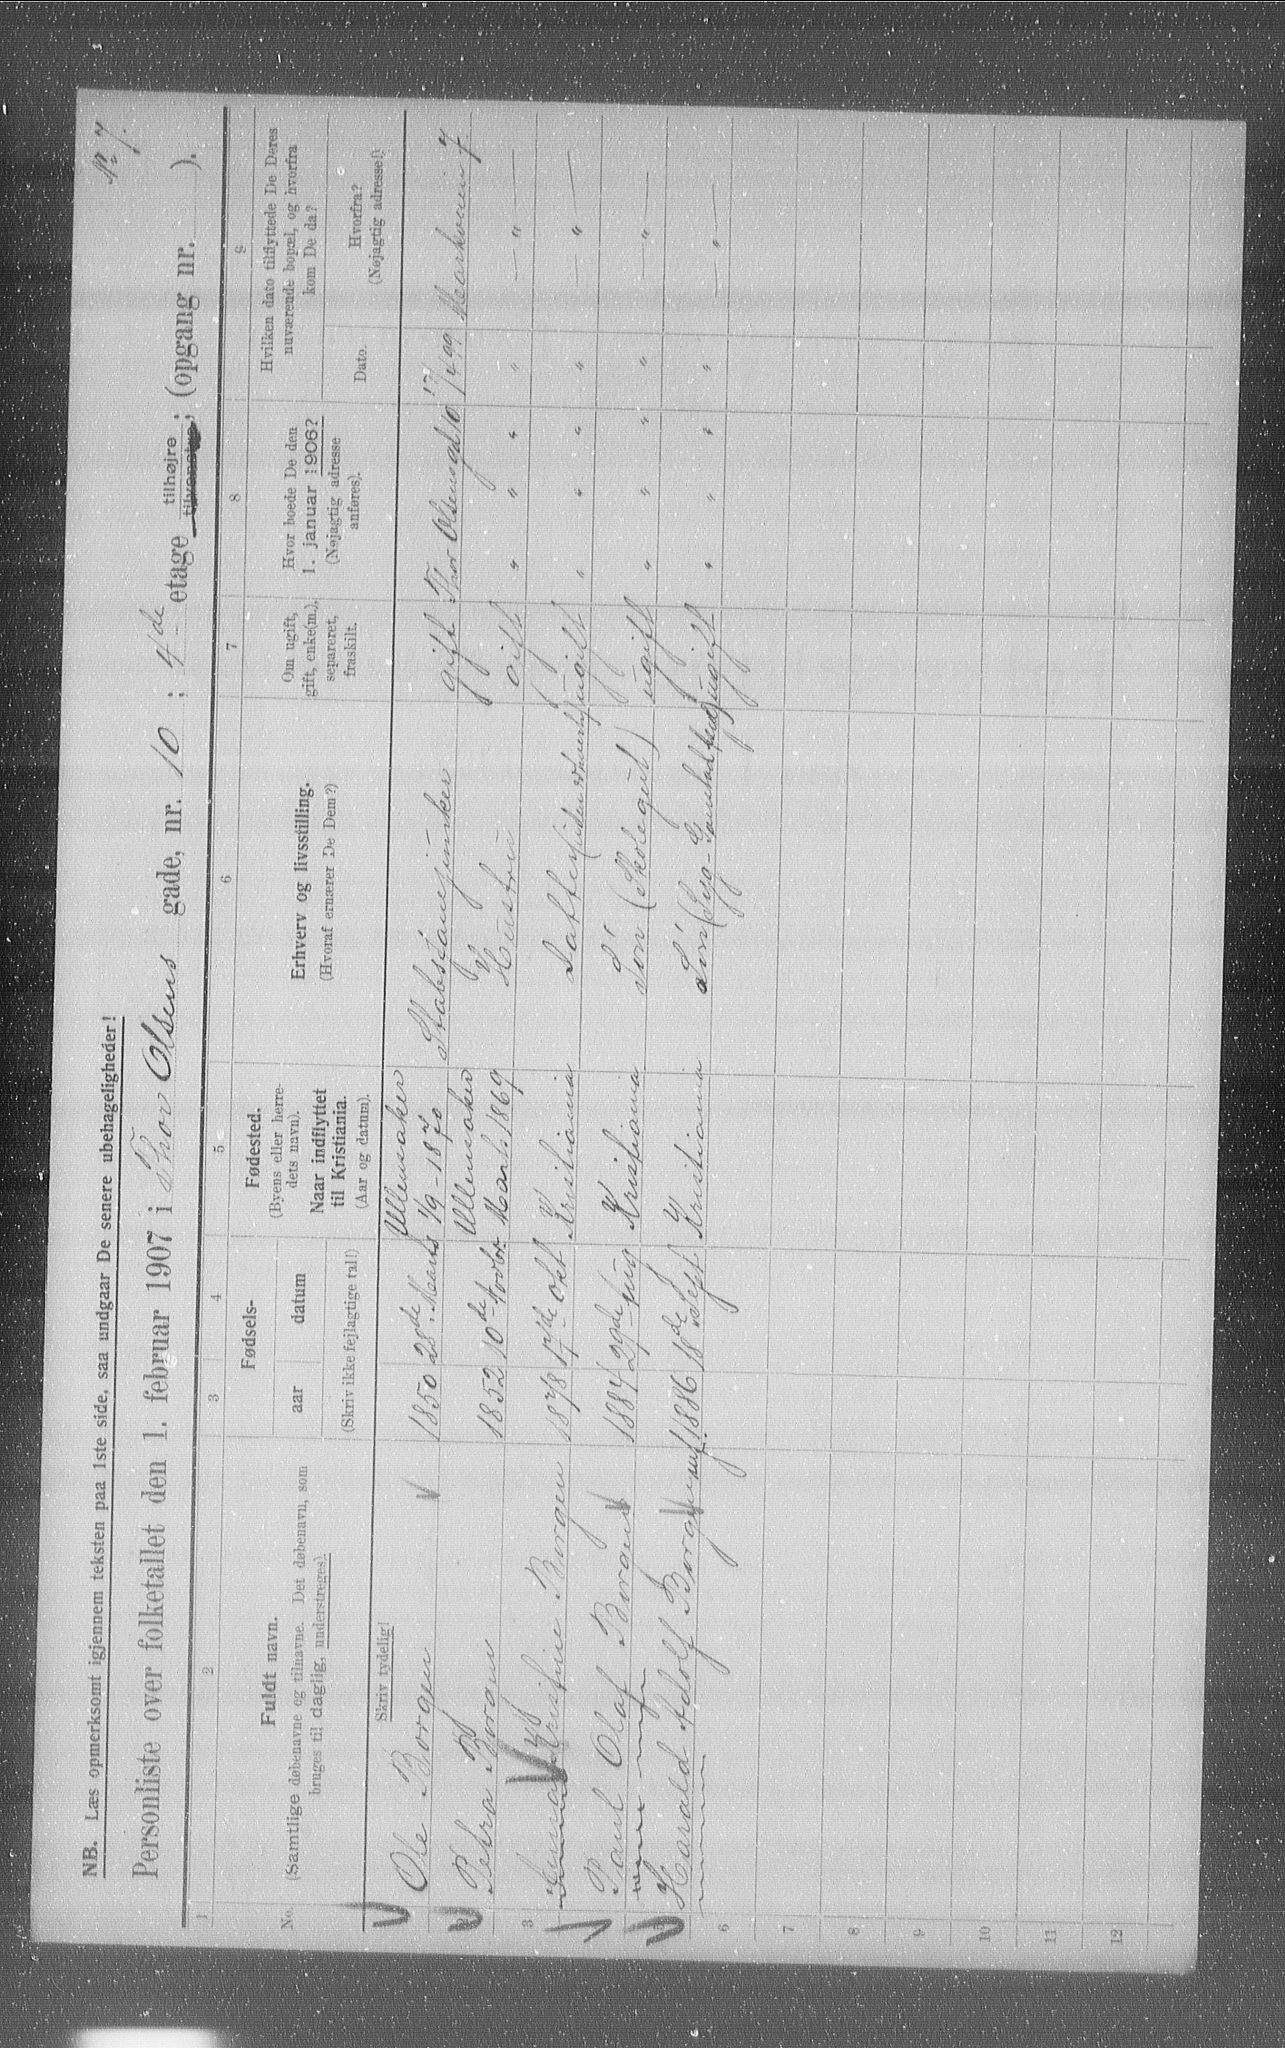 No 7.
NB. Læs opmerksomt igjennem teksten paa 1ste side, saa undgaar De senere ubehageligheder!
Personliste over folketallet den 1. februar 1907 i Thor Olsens gade, nr. 10 ; 4de etage tilhøjre tilvenstre; (opgang nr. ).
1 2 3 4 5 6 7 8 9
No.
Fuldt navn.
(Samtlige døbenavne og tilnavne. Det døbenavn, som
bruges til daglig, understreges).
Skriv tydelig!
Fødsels-
aar datum
(Skriv ikke fejlagtige tal!)
Fødested.
(Byens eller herre-
dets navn).
Naar indflyttet
til Kristiania.
(Aar og datum).
Erhverv og livsstilling.
(Hvoraf ernærer De Dem?)
Om ugift,
gift, enke(m.),
separeret,
fraskilt.
Hvor boede De den
1. januar 1906?
(Nøjagtig adresse
anføres).
Hvilken dato tilflyttede De Deres
nuværende bopæl, og hvorfra
kom De da?
Dato.
Hvorfra?
(Nøjagtig adresse!)
Ole Borgen 1850 28de Marts Ullensaker 1/9-1870 Stabsfanejunker gift Thor Olsensgd 10 17/4 99 Markveien 7
Petra Borgen 1852 10de Novbr Ullensaker Marts 1869 Hustru gift " " " " — " —
3 Kristine Borgen 1878 17de Okt Kristiania Datter ugift " " " " — " —
Paul Olaf Borgen 1884 29de Aug Kristiania Søn (Skolegut) ugift " " " " — " —
5 Harald Adolf Borgen 1886 18de Sept Kristiania Søn ugift " " " " — " —
6
7
8
9
10
11
12